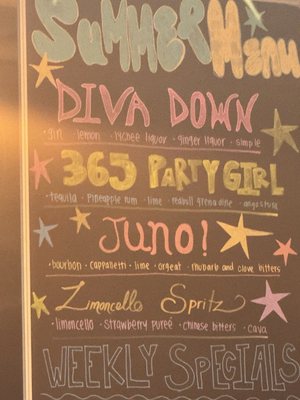 SUMMER MENU
DIVA DOWN
· gin · lemon · lychee liquor · ginger liquor · simple
365 PARTY GIRL
· tequila · pineapple rum · lime · redbull grenadine · angostura
JUNO!
· bourbon · cappelletti · lime · orgeat · rhubarb and clove bitters
Limoncello Spritz
· limoncello · strawberry pureé · chinese bitters · cava
WEEKLY SPECIALS